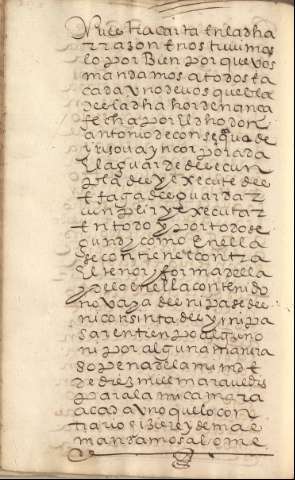 nuestra carta en la dha
rrazon E nos tuuimos
lo por Bien por que vos
mandamos a todos E a
cada vno de vos que la
dha hordenança
fecha por El dho don
antonio de
y risoua yncorporada
la guarde de E cun
pla de y Execute de
E faga de guardar
cunplir y Executar
En todo y por todo se
gund y como En ella
se contiene contra
El tenor y forma della
y de lo En ella contenido
no vaya de ni pase de
ni consinta de yr ni pa
sar En tienpo alguno
ni por alguna manera
so pena de la mi mrd E
de diez mill marauedis
para la mi camara
a cada vno que lo con
trario hiziere y demas
mandamos al ome